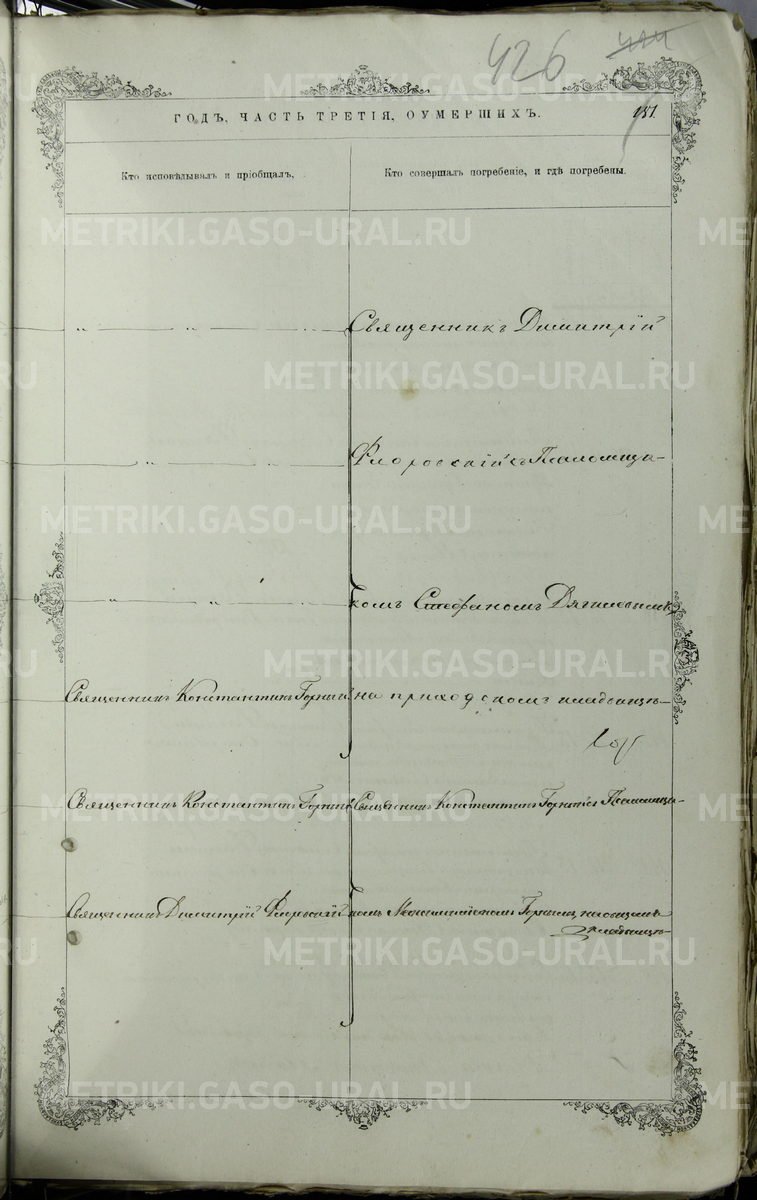 426
ГОДЪ, ЧАСТЬ ТРЕТІЯ, ОУМЕРШИХЪ.
151.
Кто исповѣдывалъ и пріобщалъ.
Кто совершалъ погребеніе, и гдѣ погребены.
Священникъ Димитрій
Флоровскій съ Псаломщи-
комъ Стефаномъ Дягилевымъ
Священникъ Константинъ Горныхъ
на приходскомъ кладбищѣ
Священникъ Константинъ Горныхъ
Священникъ Константинъ Горныхъ съ Псаломщи-
Священникъ Димитрій Флоровскій
комъ Горныхъ на общемъ
кладбищѣ
METRIKI.GASO-URAL.RU